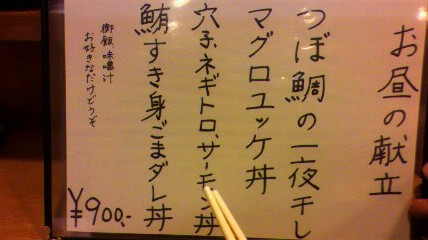 お昼の献立
つぼ鯛の一夜干し
マグロユッケ丼
穴子、ネギトロ、サーモン丼
鮪すき身ごまダレ丼
御飯、味噌汁
お好きなだけどうぞ
¥900,-